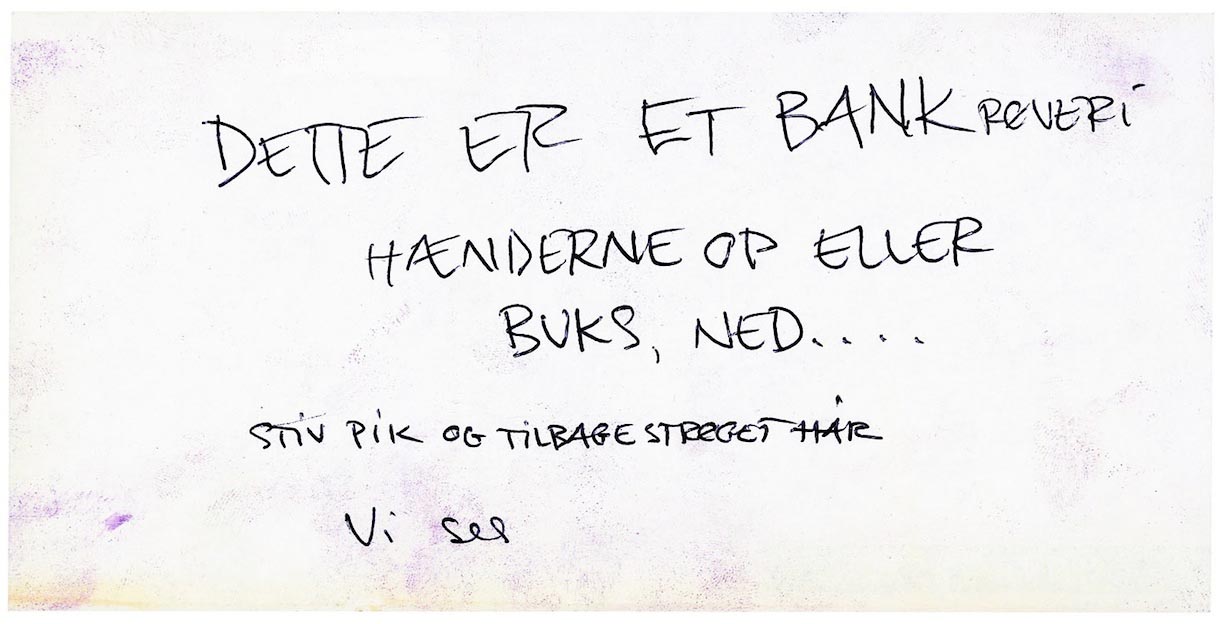 DETTE ER ET BANKRØVERI
HÆNDERNE OP ELLER
BUKS, NED....
STIV PIK OG TILBAGESTRØGET HÅR
Vi ses